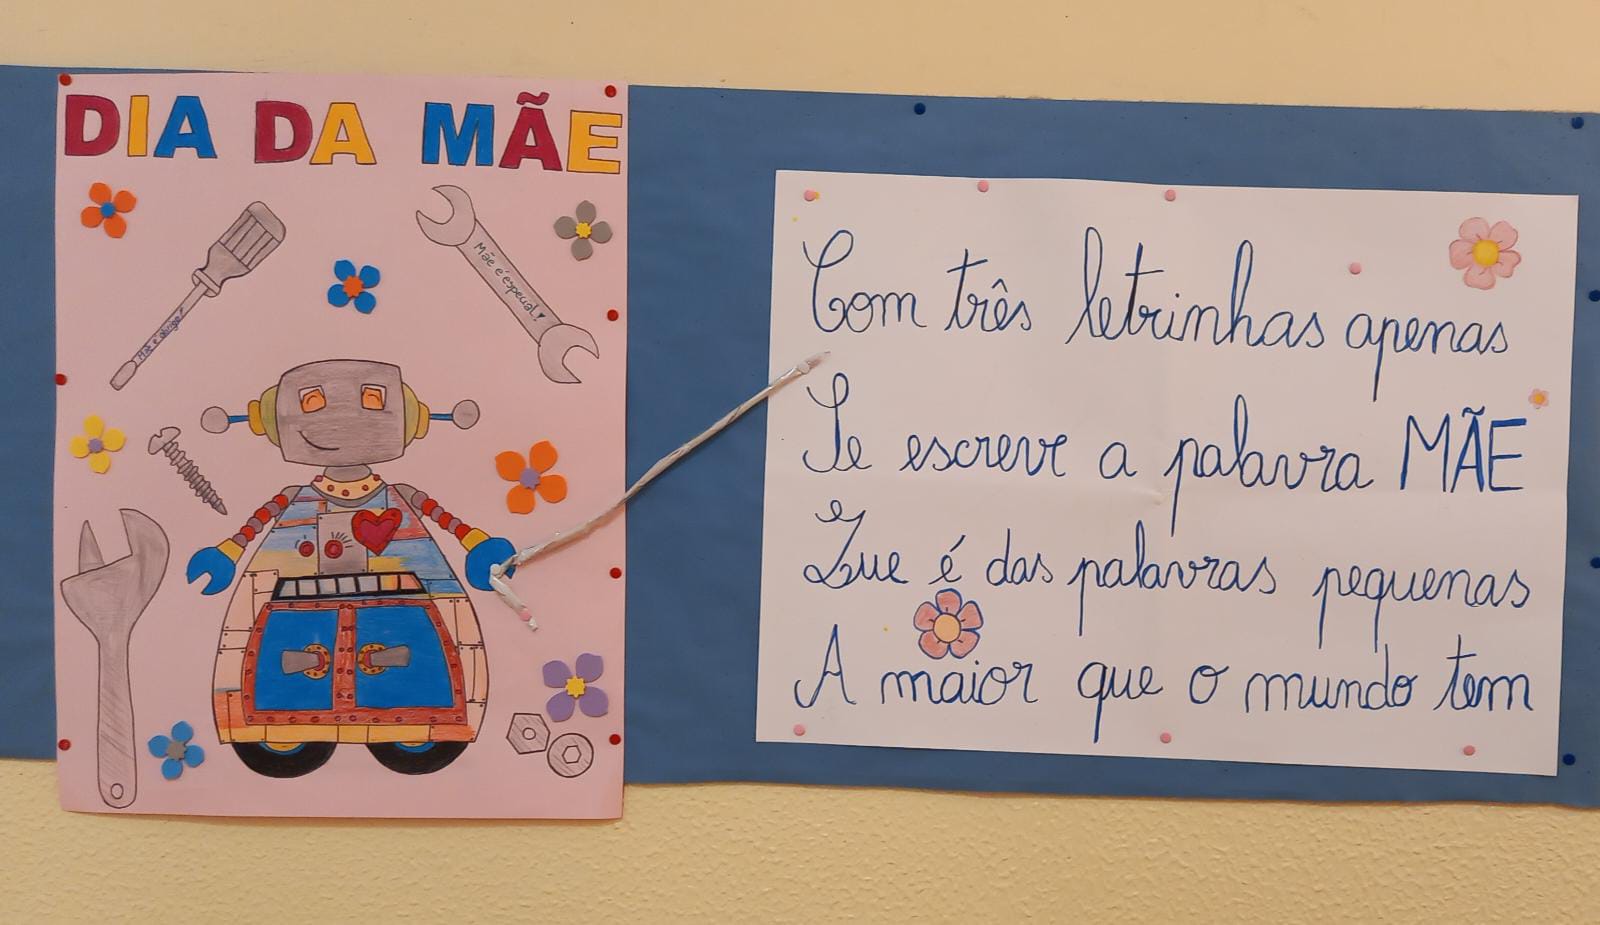 DIA DA MÃE
Mãe é abrigo!
Mãe é especial!
Com três letrinhas apenas
Se escreve a palavra MÃE
Que é das palavras pequenas
A maior que o mundo tem